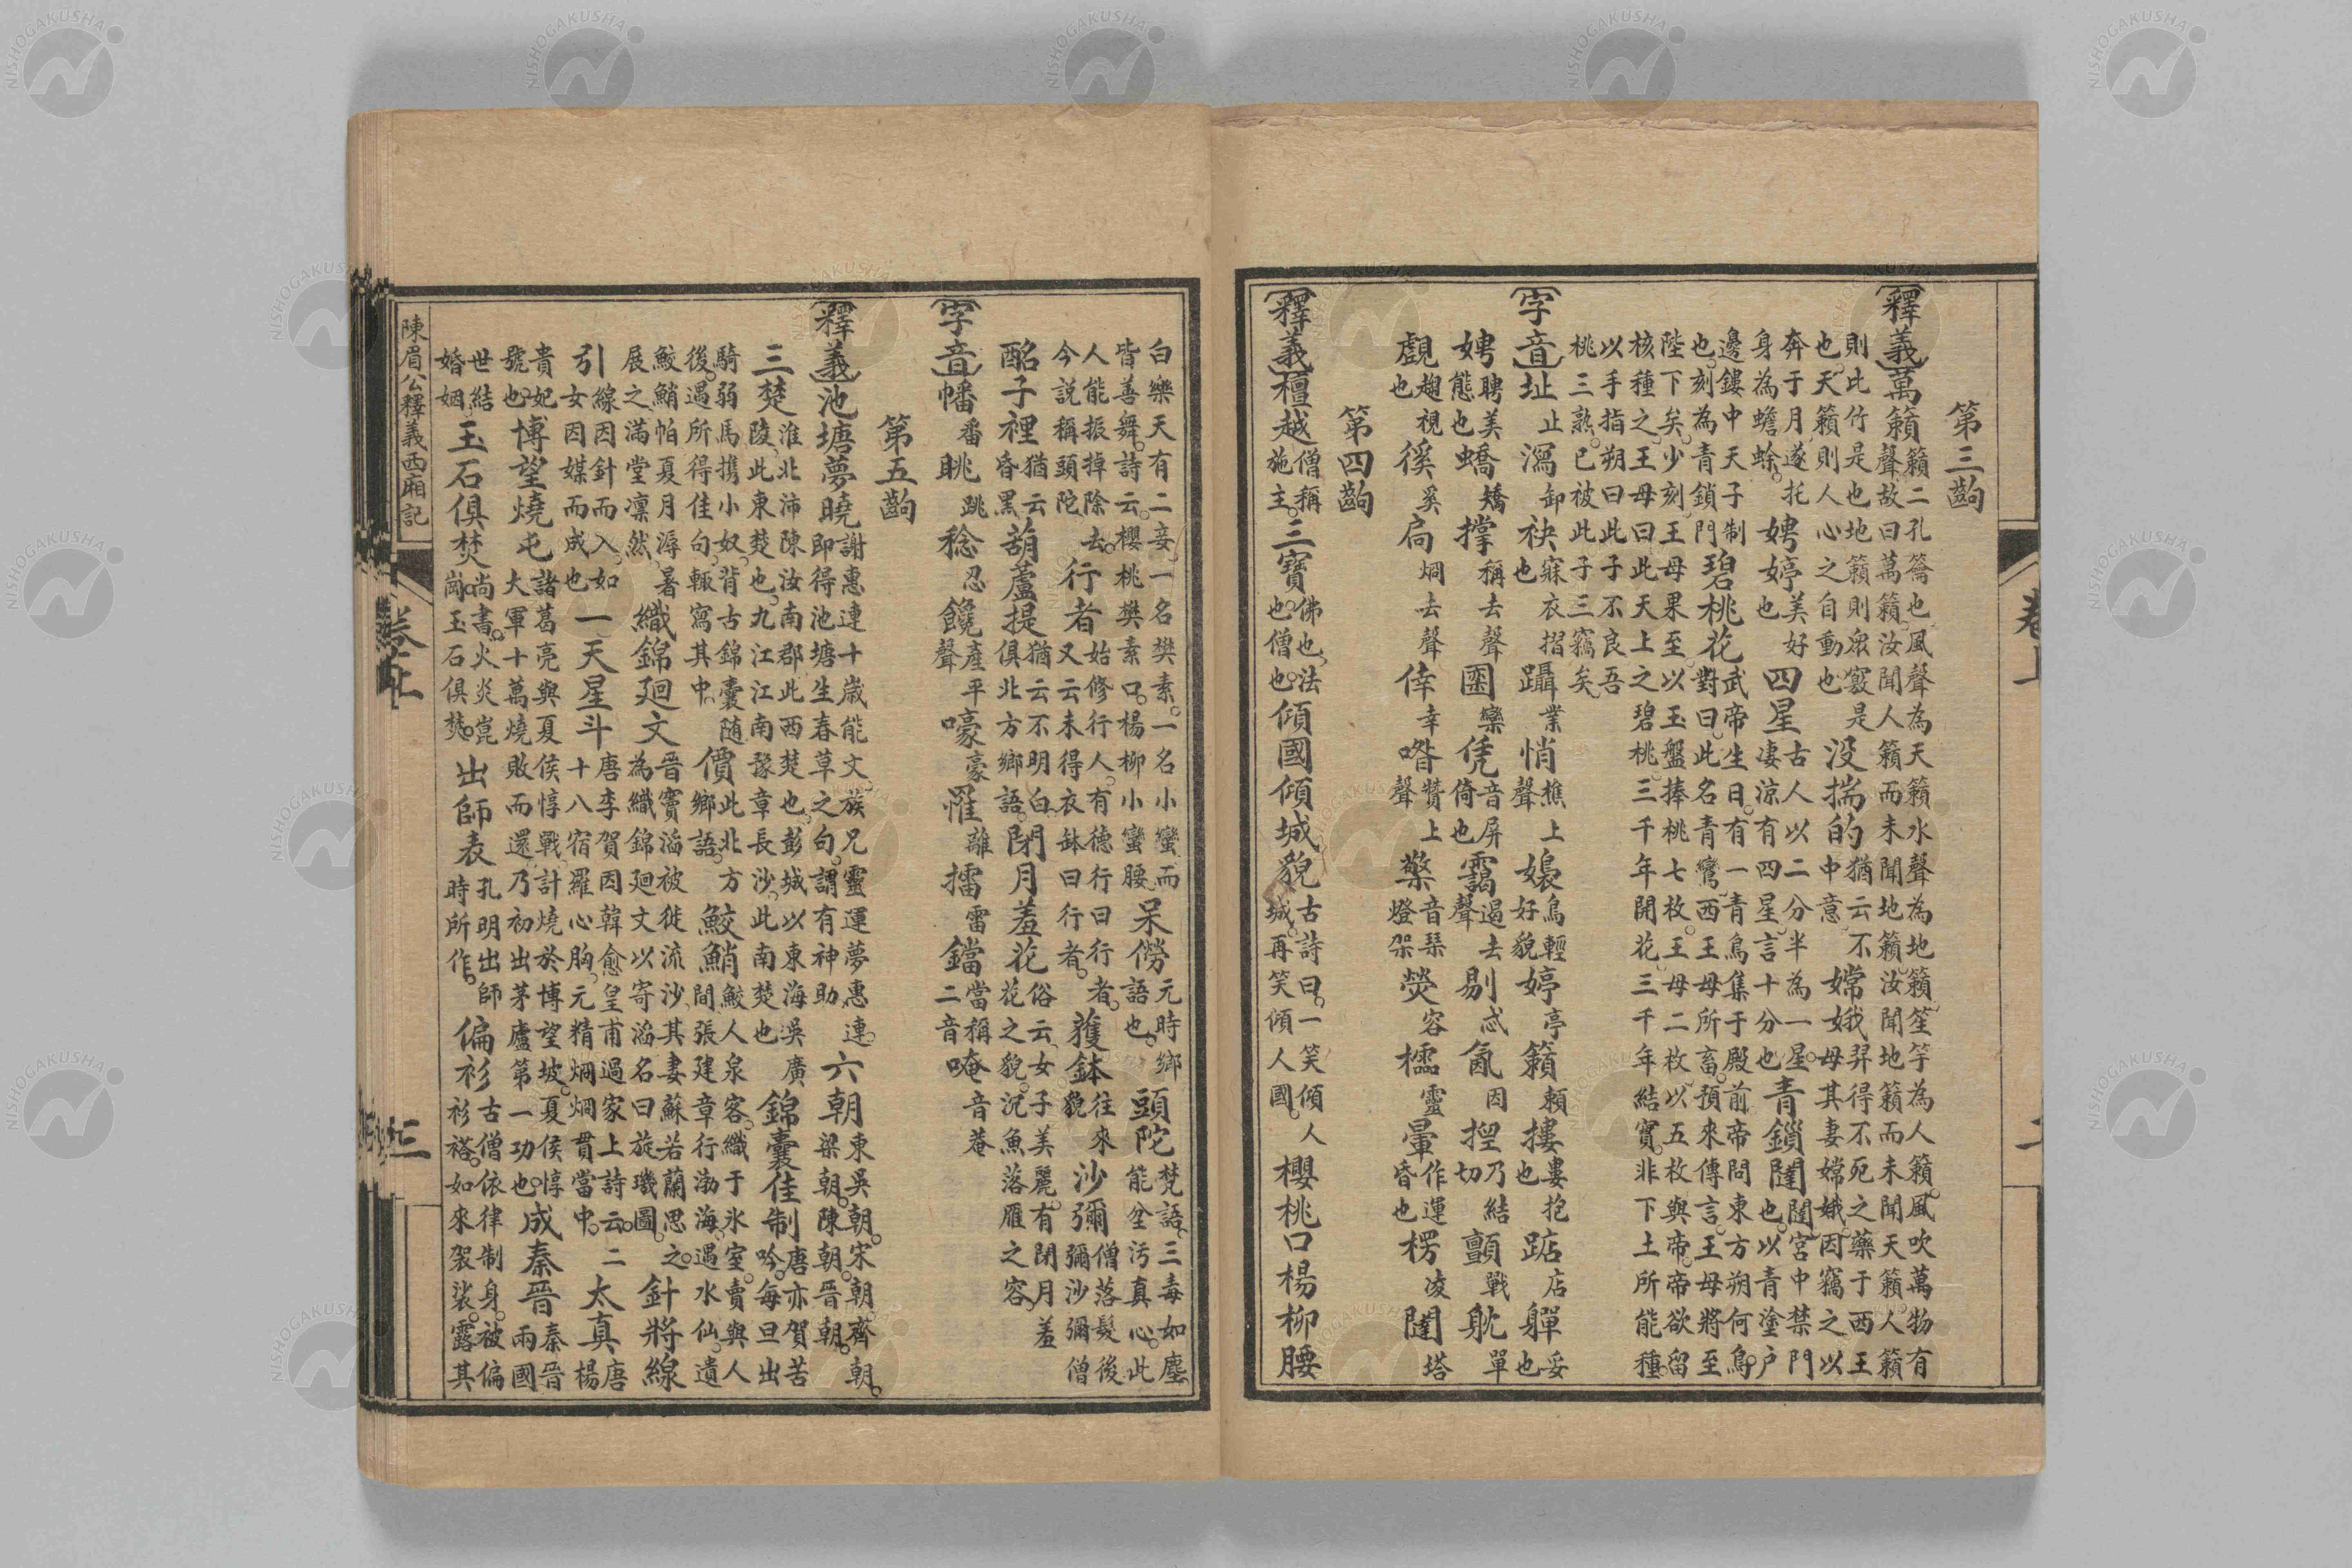 第三齣
釋義萬籟籟二孔籥也風聲為天籟水聲為地籟笙竽為人籟風吹萬物有
聲故曰萬籟汝聞人籟而未聞地籟汝聞地籟而未聞天籟人籟
則此竹是也地籟則眾竅是也天籟則人心之自動也没揣的猶云不中意嫦娥羿得不死之藥于西王母其妻嫦娥因竊之以
奔于月遂托身為蟾蜍娉婷美好也四星古人以二分半為一星凄涼有四星言十分也青鎖闥闥宮中禁門也以青塗户
邊鏤中天子制也刻為青鎖門碧桃花武帝生日有一青鳥集于殿前帝問東方朔何鳥對曰此名青鸞西王母所畜預來傳言王母將至
陛下矣少刻王母果至以玉盤捧桃七枚王母二枚以五枚與帝帝欲留
核種之王母曰此天上之碧桃三千年開花三千年結實非下土所能種
以手指朔曰此子不良吾桃三熟已被此子三竊矣
字音址止瀉卸袂寐衣摺也躡業悄樵上聲嬝鳥輕好貌婷亭籟賴摟婁抱也踮店軃妥也
娉聘美態也蟜矯撑稱去聲圞欒凭音屏倚也靄遏去聲剔忒氤因揑乃結切顫戰躭單
覷趨視也徯奚扃烱去聲倖幸喒昝上聲檠音琹燈架熒容櫺靈暈作運昏也楞凌闥塔
第四齣
釋義檀越僧稱施主三寶佛也法也僧也傾國傾城貌古詩曰一笑傾人城再笑傾人國櫻桃口楊柳腰
白樂天有二妾一名樊素一名小蠻而皆善舞詩云櫻桃樊素口楊柳小蠻腰呆僗元時鄉語也頭陀梵語三毒如塵能坌污真心此
人能振掉除去今說稱頭陀行者始修行人有德行曰行者又云未得衣鉢曰行者䕶鉢往來貌沙彌僧落髮後彌沙彌僧
酩子裡猶云昏黑葫蘆提猶云不明白俱北方鄉語閉月羞花俗云女子美麗有閉月羞花之貌沉魚落雁之容
字音幡番眺跳稔忍饞產平聲嚎豪罹離擂雷鐺當稱二音唵音菴
第五齣
釋義池塘夢曉謝惠連十歲能文族兄靈運夢惠連即得池塘生春草之句謂有神助六朝東吳朝宋朝齊朝梁朝陳朝晉朝
三楚淮北沛陳汝南郡此西楚也彭城以東海吳廣陵此東楚也九江江南豫章長沙此南楚也錦囊佳制唐亦賀苦吟每旦出
騎弱馬携小奴背古錦囊随後遇所得佳句輙寫其中價此北方鄉語鮫鮹鮫人泉容織于氷室賣與人間張建章行渤海遇水仙遺
鮫鮹帕夏月溽暑展之滿堂凛然織錦廻文晉竇滔被徙流沙其妻蘇若蘭思之為織錦廻文以寄滔名曰旋璣圖針將線
引線因針而入如女因媒而成也一天星斗唐李賀因韓愈皇甫過家上詩云二十八宿羅心胸元精烱烱貫當中太真唐楊
貴妃號也博望燒屯諸葛亮與夏侯惇戰計燒於博望坡夏侯惇大軍十萬燒敗而還乃初出茅廬第一功也成秦晉秦晉兩國
世結婚姻玉石俱焚尚書火炎崑崗玉石俱焚出師表孔明出師時所作偏衫古僧依律制身被偏衫褡如來袈裟露其
陳眉公釋義西廂記
卷上
三
NISHOGAKUSHA